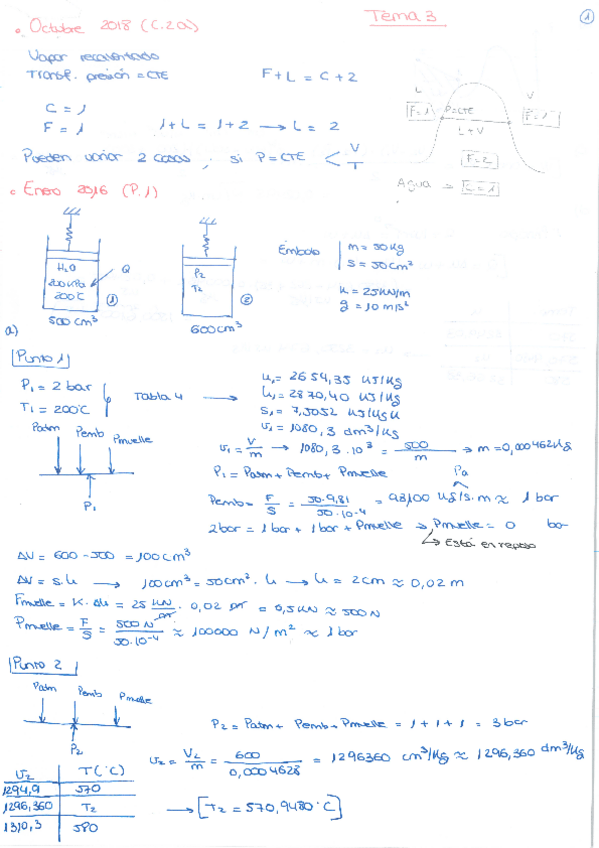 Tema 3
1
Octubre 2018 (C.2a)
Vapor recalentado
Transf. presión = CTE
F+L = C+2
C = 1
F = 1
1+L = 1+2 → L = 2
Pueden variar 2 cosas, si P=CTE < V T
L
V
F=1
P=CTE
F=1
L+V
F=2
Agua → C=1
Enero 2016 (P.1)
H2O
200 kPa
200°C
Q
①
500 cm³
P2
T2
②
600 cm³
Émbolo
m = 50 kg
S = 50 cm²
K = 25 kN/m
g = 10 m/s²
a)
Punto 1
P1 = 2 bar
T1 = 200°C
Tabla 4 →
u1 = 2654,35 kJ/kg
h1 = 2870,40 kJ/kg
s1 = 7,5052 kJ/kgK
v1 = 1080,3 dm³/kg
Patm Pemb Pmuelle
P1
v1 = V/m → 1080,3·10³ = 500/m → m = 0,000462 kg
P1 = Patm + Pemb + Pmuelle
Pa
Pemb = F/S = 50·9,81/50·10-4 = 98100 kg/s·m ≈ 1 bar
2bar = 1bar + 1bar + Pmuelle → Pmuelle = 0 bar
↳ Está en reposo
ΔV = 600 - 500 = 100 cm³
ΔV = S·h → 100 cm³ = 50 cm²·h → h = 2cm ≈ 0,02 m
Fmuelle = K·Δh = 25 kN/m · 0,02 m = 0,5 kN ≈ 500 N
Pmuelle = F/S = 500 N/50·10-4 ≈ 100000 N/m² ≈ 1 bar
Punto 2
Patm Pemb Pmuelle
P2
P2 = Patm + Pemb + Pmuelle = 1+1+1 = 3 bar
v2 = V2/m = 600/0,0004628 = 1296360 cm³/kg ≈ 1296,360 dm³/kg
v2 T(°C)
1294,9 570
1296,360 T2
1310,3 580
→ [T2 = 570,9480 °C]